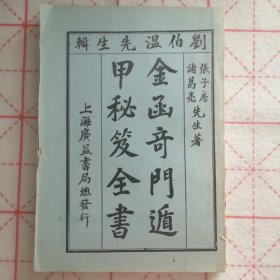 劉伯温先生輯
張子房
諸葛亮
先生著
金函奇門遁
甲秘笈全書
上海廣益書局總發行